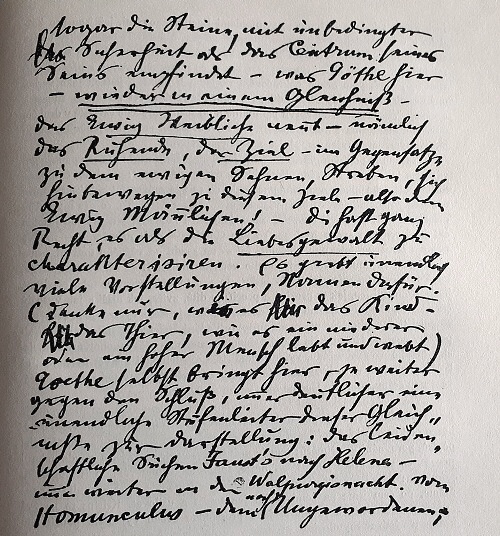 sogar die Steine, mit unbedingter
Sicherheit als das Centrum seines
Seins empfindet – was Göthe hier
– wieder in einem Gleichniß –
das Ewig Weibliche nennt – nämlich
das Ruhende, das Ziel – im Gegensatze
zu dem ewigen Sehnen, Streben, sich
hinbewegen zu diesem Ziele – also dem
Ewig Männlichen! – Du hast ganz
Recht, es als die Liebesgewalt zu
charakterisiren. Es giebt unendlich
viele Vorstellungen, Namen dafür.
(Denke nur, wie es das Kind –
das Thier, wie es ein niederer
oder ein hoher Mensch lebt und webt)
Goethe selbst bringt hier, je weiter
gegen den Schluß, immer deutlicher eine
unendliche Stufenleiter dieser Gleich„
nisse zur Darstellung: das leiden„
schaftliche Suchen Faust's nach Helena –
immer weiter in der Walpurgisnacht. vom
Homunculus – dem noch Ungewordenen,